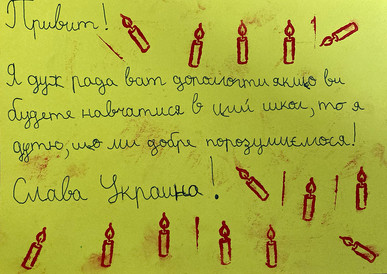 Привит!
Я дуж рада вам допомогти якщо ви
будете навчатися в ций школ, то я
думю, що ми добре порозумиємося!
Слава Украина!